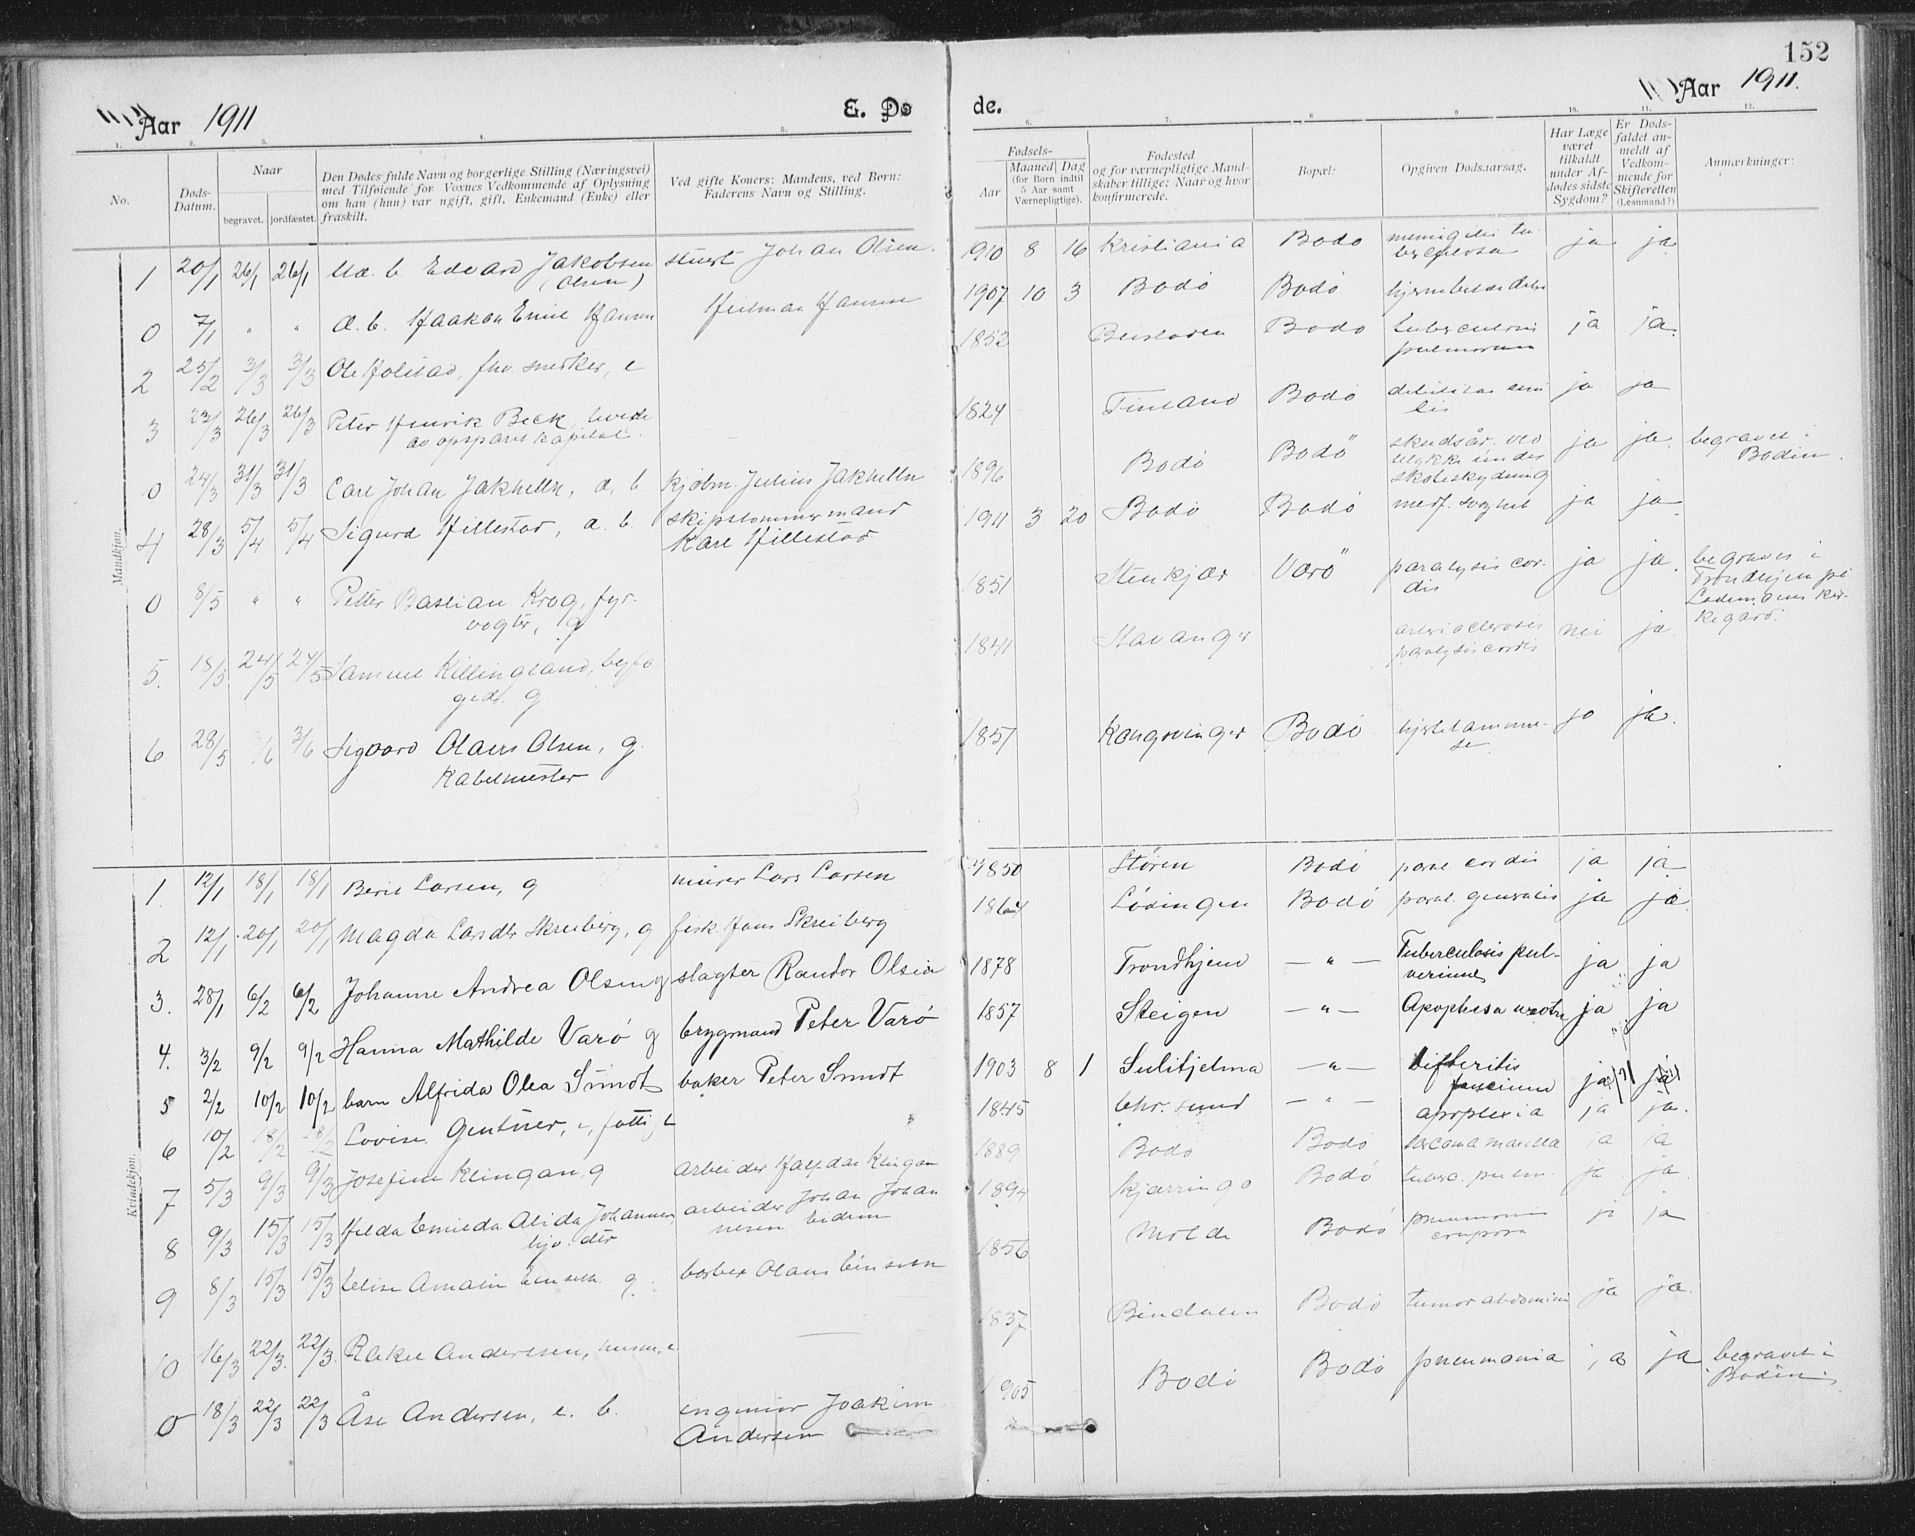 152
Aar 1911
E. Dø
de.
Aar 1911.
1. 2. 3. 4. 5. 6. 7. 8 9 10. 11. 12.
No.
Døds-Datum.
Naar
begravet. jordfæstet.
Den Dødes fulde Navn og borgerlige Stilling (Næringsvei)
med Tilføiende for Voxnes Vedkommende af Oplysning
om han (hun) var ugift, gift, Enkemand (Enke) eller
fraskilt.
Ved gifte Koner: Mandens, ved Børn:
Faderens Navn og Stilling.
Fødsels-
Aar
Maaned Dag
(for Børn indtil
5 Aar samt
Værnepligtige).
Fødested
og for værnepligtige Mand-
skaber tillige: Naar og hvor
konfirmerede.
Bopæl:
Opgiven Dødsaarsag.
Har Læge
været
tilkaldt
under Af-
dødes sidste
Sygdom?
Er Døds-
faldet an-
meldt af
Vedkom-
mende for
Skifteretten
(Lensmand?)
Anmærkninger:
Mandkjøn.
1 20/1 26/1 26/1 Edvard Jakobsen (Olsen) stuert Johan Olsen. 1910 8 16 Kristiania Bodø ja ja
0 7/1 " " d. b. Haakon Emil Hansen Hilmar Hansen 1907 10 3 Bodø Bodø
2 25/2 3/3 3/3 Ole Holstad, fhv. snekker, e 1852 Beistaden Bodø ja ja.
3 23/3 26/3 26/3 Peter Henrik Beck, levede
av opspart kapital. 1824 Finland Bodø ja ja
0 24/3 31/3 31/3 Carl Johan Jakhelln, d. b kjøbm. Julius Jakhelln 1896 Bodø Bodø skudsår. ved
ulykke under
skiveskydning ja ja. begravet i
Bodin.
4 28/3 5/4 5/4 Sigurd Hillestad, d. b. skipstømmermand
Karl Hillestad 1911 3 20 Bodø Bodø medf. svaghet ja ja
0 8/5 " " Petter Bastian Krog, fyr-
vogter, g 1851 Stenkjær Værø paralysis cor-
dis ja ja. begraves i
Trondhjem på
Lademoens kir-
kegård.
5. 18/5 24/5 24/5 Samuel Killingland, byfo
ged. g 1841 Stavanger arteriosclerosis
paralysis cordis nei ja
6 28/5 3/6 3/6 Sigvard Olaus Olsen, g.
Kabelmester 1851 Kongsvinger Bodø hjertelammel-
se ja ja.
Kvindekjøn.
1. 12/1 18/1 18/1 Berit Larsen, g murer Lars Larsen 1850 Støren Bodø paral cordis ja ja
2 12/1 20/1 20/1 Magda Larsdtr Skreiberg, g fisk. Hans Skreiberg 1864 Lødingen Bodø paral. generalis ja ja
3. 28/1 6/2 6/2 Johanne Andrea Olsen g slagter Randor Olsen 1878 Trondhjem — " — Tuberculosis pul- ja ja
4. 3/2 9/2 9/2 Hanna Mathilde Varø g brygmand Peter Varø 1857 Steigen — " — ja ja
5 2/2 10/2 10/2 barn Alfrida Olea Smidt baker Peter Smidt 1903 8 1 Sulitjelma — " — Difteritis
faucium ja ja
6 10/2 18/2 Lovise Gentner, e, fattig 1845 Chr. sund — " — apoplexia ja ja.
7 5/3 9/3 9/3 Josefine Klingan, g arbeider Halfdan Klingan 1889 Bodø Bodø ja ja
8 9/3 15/3 15/3 Hilda Emilda Alida Johannes arbeider Johan Johan
nesen 1894 Kjærringø Bodø tuberc. pulm. ja ja.
9 8/3 15/3 15/3 Elise Amalie g. barber Olaus 1856 Molde Bodø pneumonia
crouposa ja ja
10 16/3 22/3. 22/3. Rakel Anderssen, e 1837 Bindalen Bodø tumor abdominis ja ja.
0 18/3 22/3 22/3 Åse Andersen, e. b. ingeniør Joakim
Andersen 1905 Bodø Bodø pneumonia ja ja begravet i
Bodin